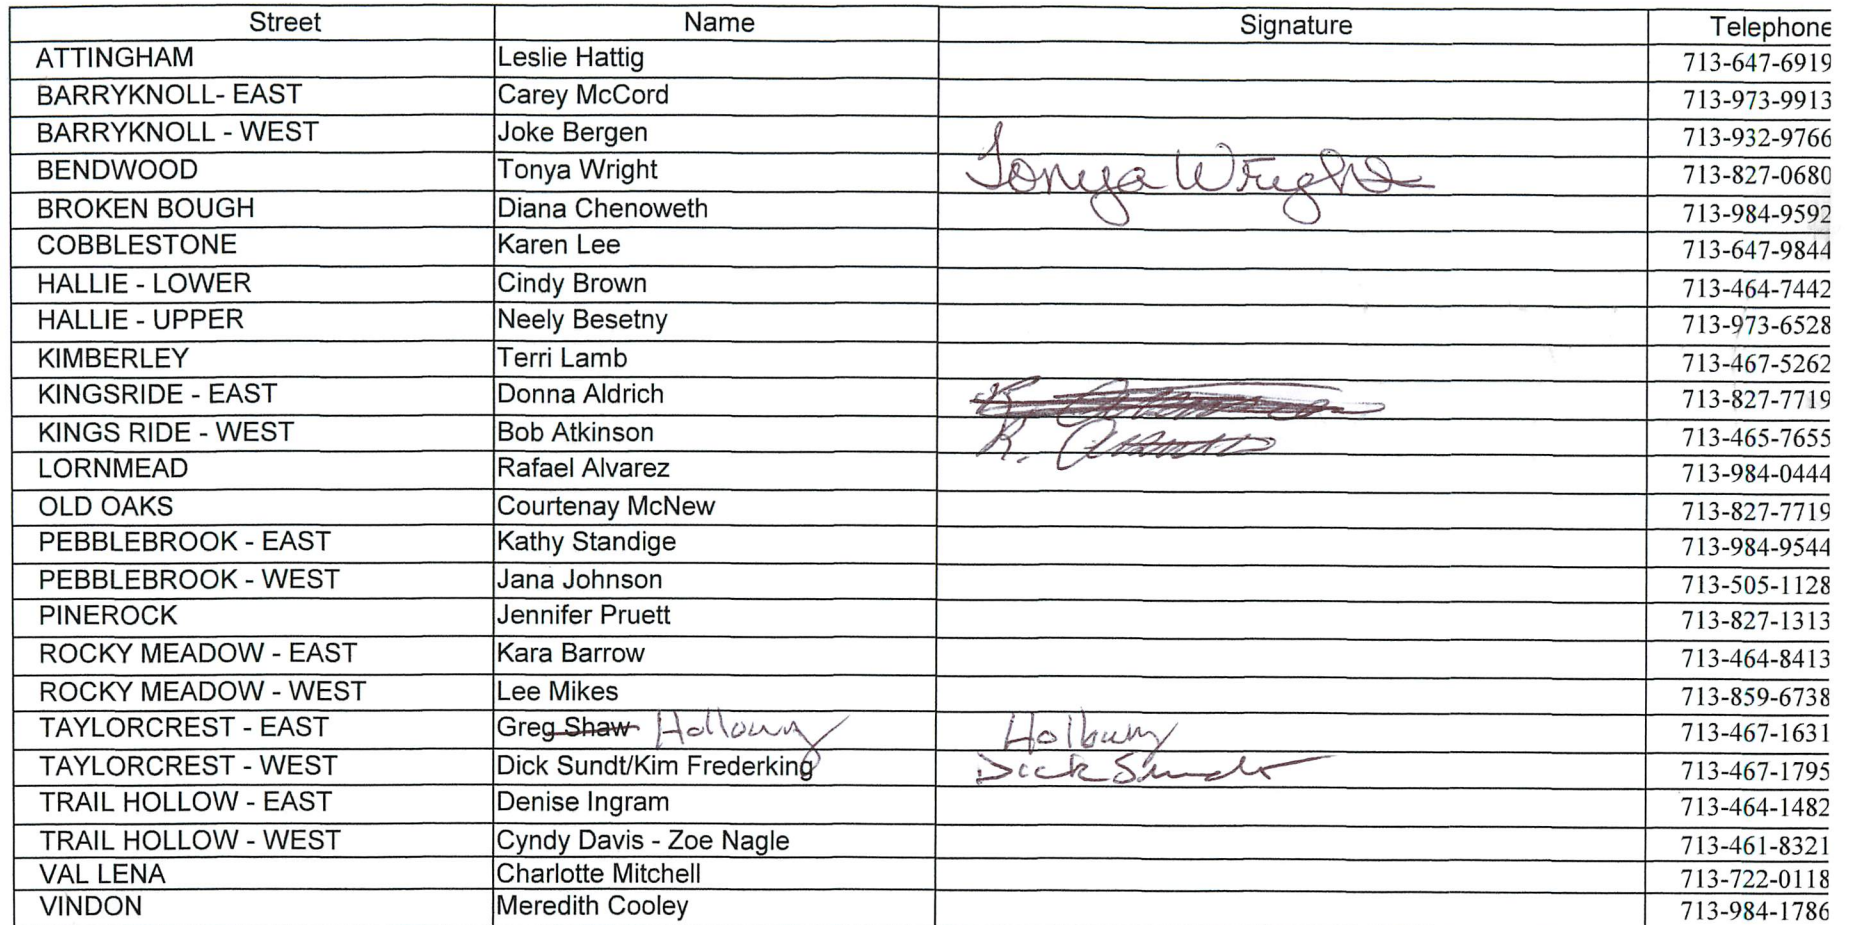 Street Name Signature Telephone
ATTINGHAM Leslie Hattig 713-647-6919
BARRYKNOLL- EAST Carey McCord 713-973-9913
BARRYKNOLL - WEST Joke Bergen 713-932-9766
BENDWOOD Tonya Wright Tonya Wright 713-827-0680
BROKEN BOUGH Diana Chenoweth 713-984-9592
COBBLESTONE Karen Lee 713-647-9844
HALLIE - LOWER Cindy Brown 713-464-7442
HALLIE - UPPER Neely Besetny 713-973-6528
KIMBERLEY Terri Lamb 713-467-5262
KINGSRIDE - EAST Donna Aldrich 713-827-7719
KINGS RIDE - WEST Bob Atkinson R. 713-465-7655
LORNMEAD Rafael Alvarez 713-984-0444
OLD OAKS Courtenay McNew 713-827-7719
PEBBLEBROOK - EAST Kathy Standige 713-984-9544
PEBBLEBROOK - WEST Jana Johnson 713-505-1128
PINEROCK Jennifer Pruett 713-827-1313
ROCKY MEADOW - EAST Kara Barrow 713-464-8413
ROCKY MEADOW - WEST Lee Mikes 713-859-6738
TAYLORCREST - EAST Greg Shaw Holloway Holloway 713-467-1631
TAYLORCREST - WEST Dick Sundt/Kim Frederking Dick Sundt 713-467-1795
TRAIL HOLLOW - EAST Denise Ingram 713-464-1482
TRAIL HOLLOW - WEST Cyndy Davis - Zoe Nagle 713-461-8321
VAL LENA Charlotte Mitchell 713-722-0118
VINDON Meredith Cooley 713-984-1786